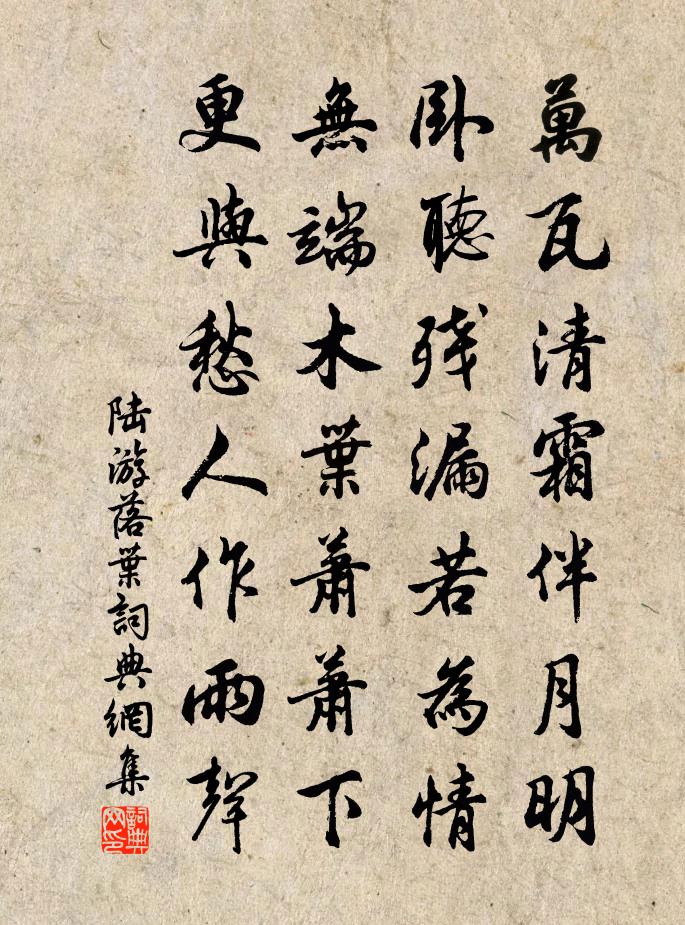 萬瓦清霜伴月明
卧聽残漏若為情
無端木葉蕭蕭下
更與愁人作雨聲
陆游落葉詞典網集
詞典网印